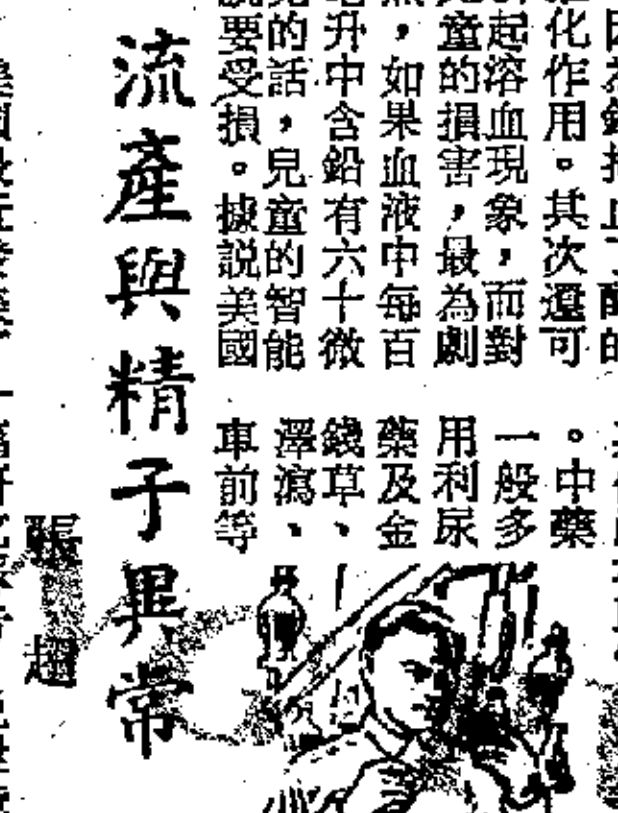 化作用。其次還可
起溶血現象，而對
童的損害，最為劇
，如果血液中每百
升中含鉛有六十微
的話，兒童的智能
要受損。據説美國
。中藥
一般多
用利尿
藥及金
錢草、
澤瀉、
車前等
流產與精子異常
張